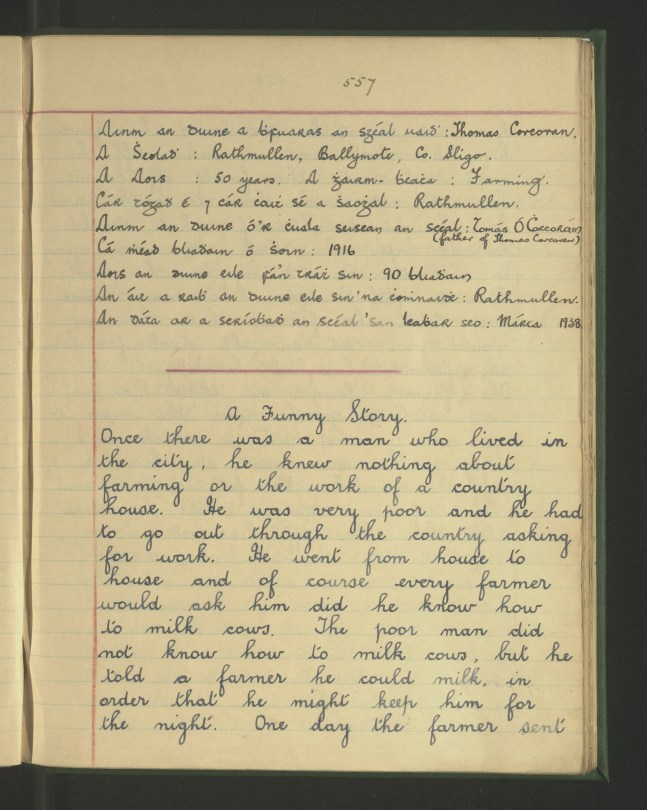 557
Ainm an duine a ḃfuaras an sgéal uaiḋ : Thomas Corcoran.
A Ṡeolaḋ : Rathmullen, Ballymote, Co. Sligo.
A Aois : 50 years. A ġairm-ḃeaṫa : Farming.
Cár tógaḋ é ⁊ cár ċaiṫ sé a ṡaoġal : Rathmullen.
Ainm an duine ó'r ċuala seisean an scéal : Tomás Ó Corcoráin
(father of Thomas Corcoran)
Cá ṁéad bliaḋain ó ṡoin : 1916
Aois an duine eile fá'n tráṫ sin : 90 bliaḋain
An áit a raiḃ an duine eile sin 'na ċoṁnaiḋe : Rathmullen.
An dáta ar a scríoḃaḋ an scéal 'san leaḃar seo : Márta 1938
A Funny Story.
Once there was a man who lived in
the city, he knew nothing about
farming or the work of a country
house. He was very poor and he had
to go out through the country asking
for work. He went from house to
house and of course every farmer
would ask him did he know how
to milk cows. The poor man did
not know how to milk cows, but he
told a farmer he could milk, in
order that he might keep him for
the night. One day the farmer sent